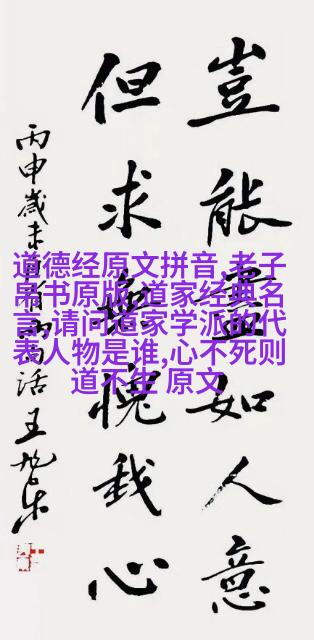 豈能盡如人意
但求無愧我心
丙申歲末
王旭东
道德经原文拼音,老子
帛书原版,道家经典名
言,请问道家学派的代
表人物是谁,心不死则
道不生 原文